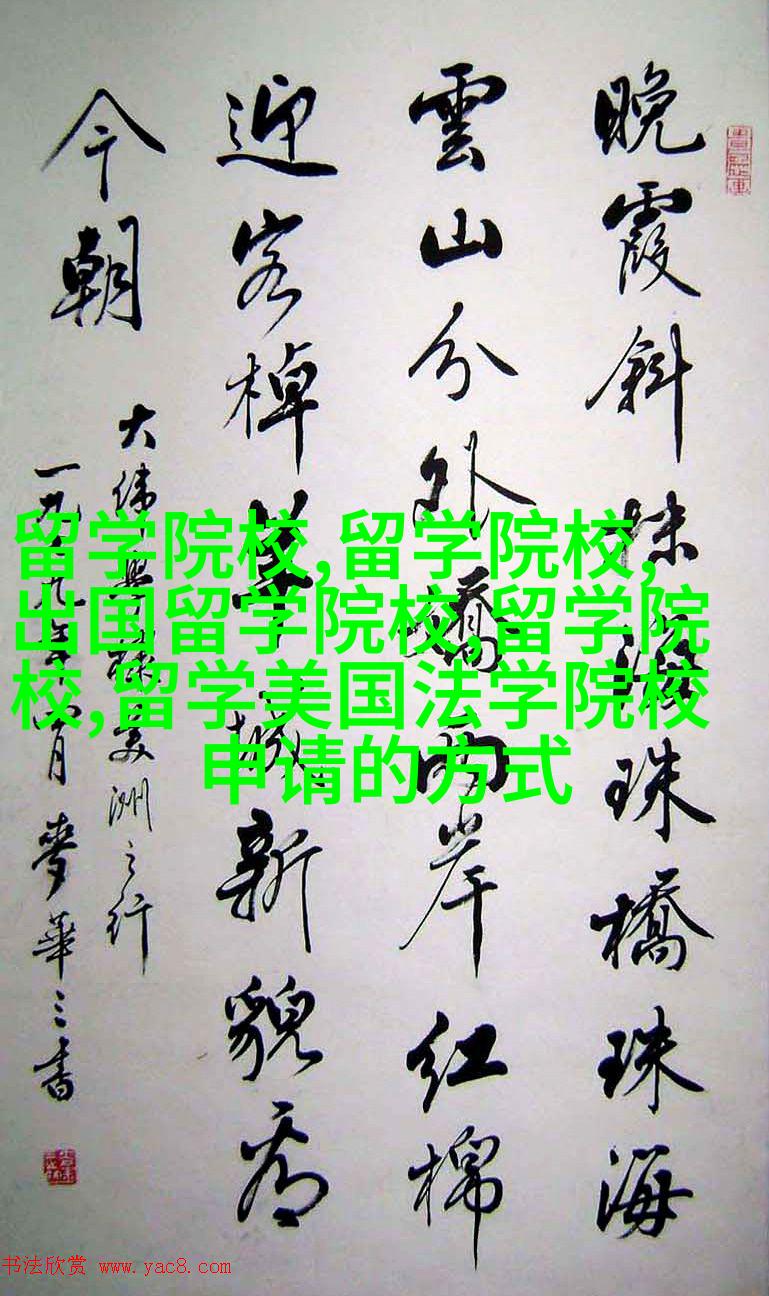 晚霞斜抹海珠橋珠海
雲山分外嬌兩岸紅棉
迎客棹羊城新貌看
今朝
美洲之行
麥華三書
留学院校,留学院校,
出国留学院校,留学院
校,留学美国法学院校
申请的方式
书法欣赏 www.yac8.com